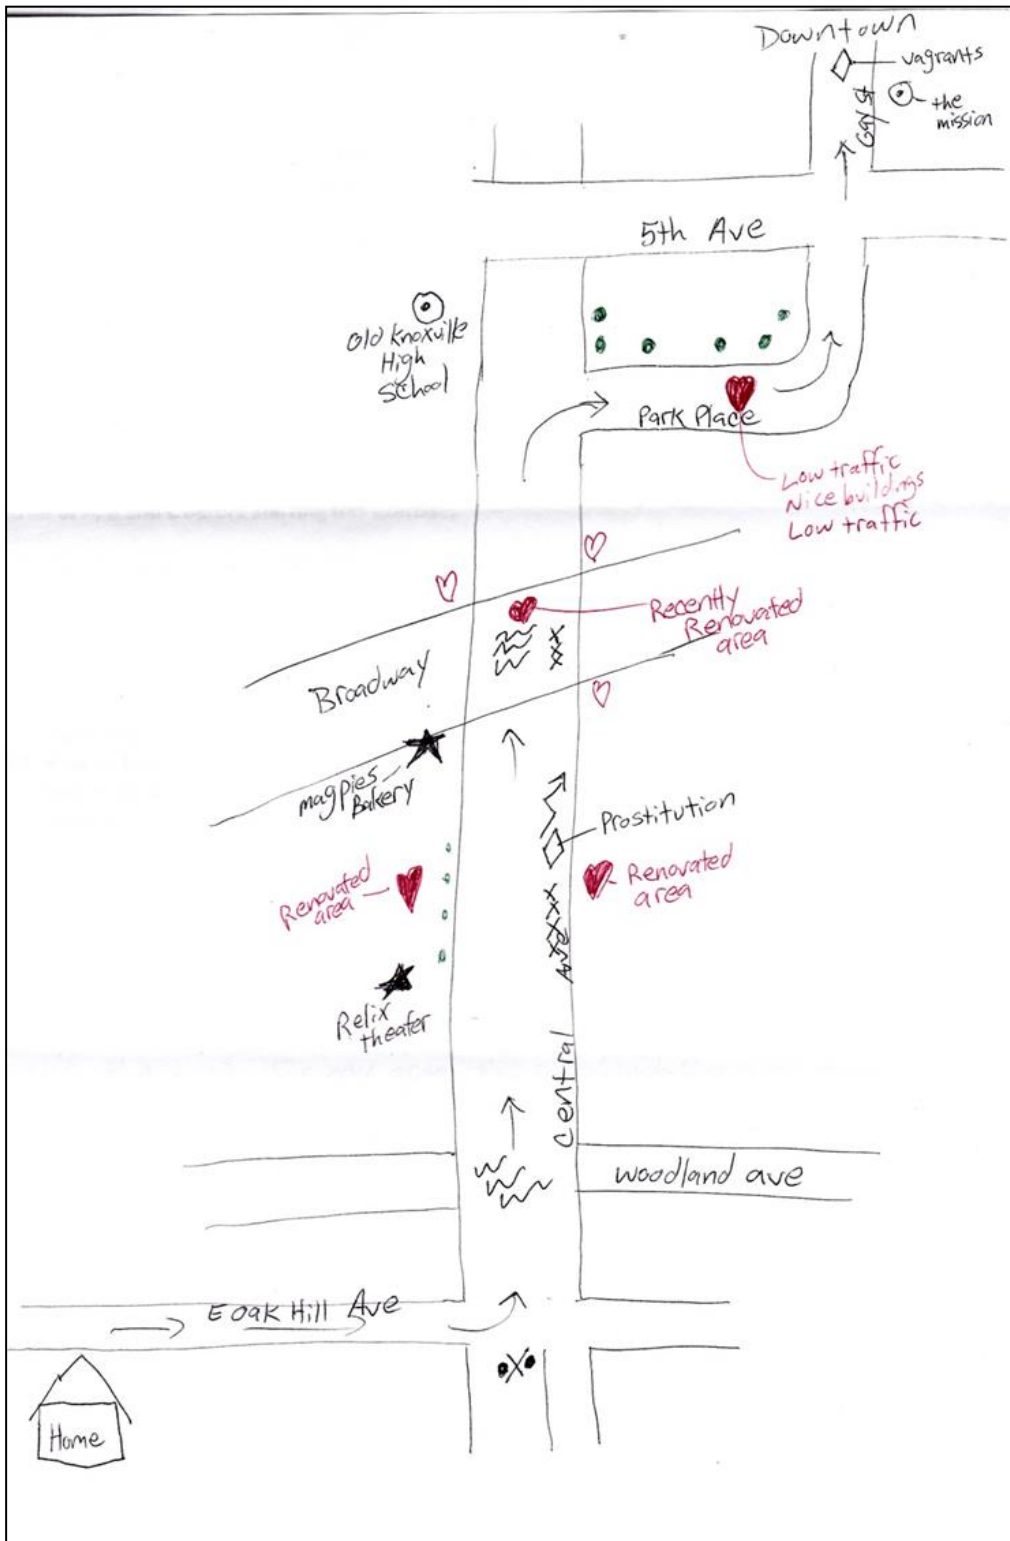 Downtown
vagrants
Gay St
the
mission
5th Ave
Old Knoxville
High
School
Park Place
Low traffic
Nice buildings
Low traffic
Recently
Renovated
area
Broadway
magpies
Bakery
Prostitution
Renovated
area
Renovated
area
Relix
theater
Central Ave
woodland ave
E Oak Hill Ave
Home